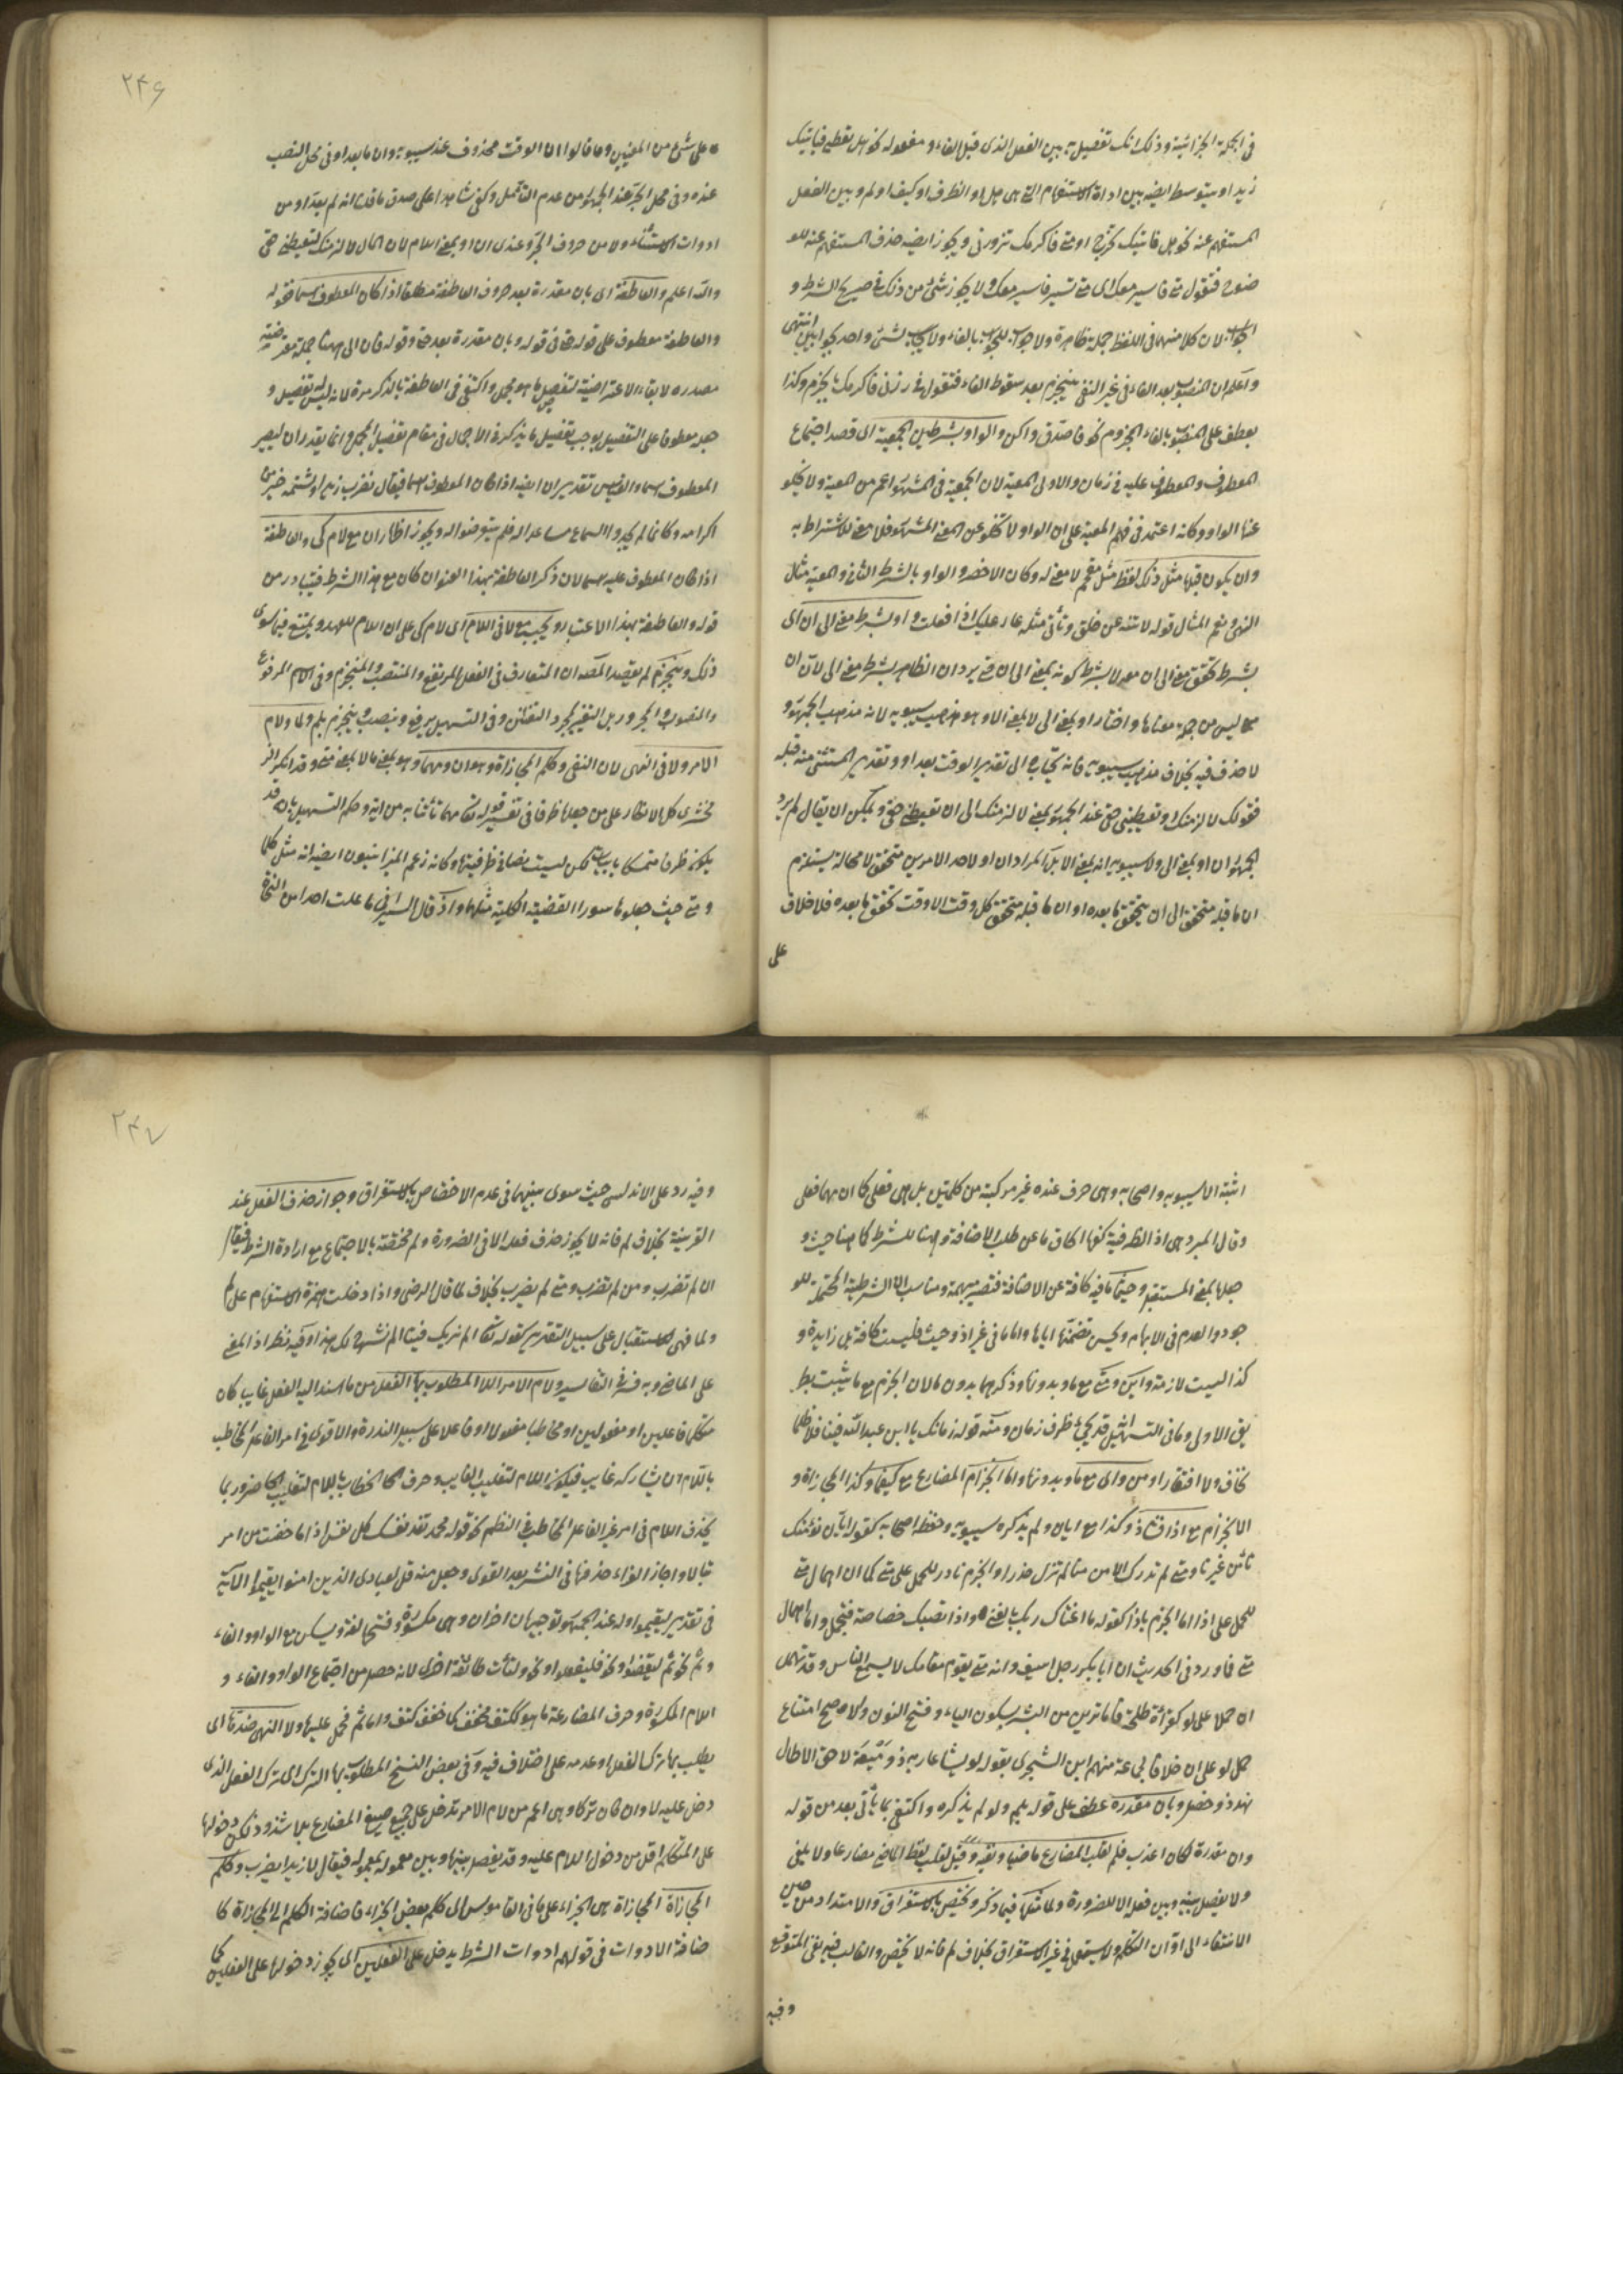 في الجملة الجزائية وذلك انك تفصل به بين الفعل الذي قبل الفاء و مفعوله نحو هل تعطي فياتيك
زيدا و يتوسط ايضا بين اداة الاستفهام التي هي هل او الظرف او كيف او لم و بين الفعل
المستفهم عنه نحو هل فاتيك تخرج او متى فاكرمك تزورني و يجوز ايضا حذف المستفهم عنه للو
ضوح فتقول متى فاسير معك اي متى تسير فاسير معك ولا يجوز شيء من ذلك في صريح الشرط و
الجواب لان كلا منهما في اللفظ جملة ظاهرة ولا جواب للجواب بالفاء ولا يجاب لشيء واحد بجوابين انتهى
واعلم ان المنصوب بعد الفاء في غير النفي ينجزم بعد سقوط الفاء فتقول في زرني فاكرمك بالجزم وكذا
يعطف على المنصوب بالفاء المجزوم نحو فاصدق واكن والواو بشرطين الجمعية اي قصد اجتماع
المعطوف والمعطوف عليه في زمان والاولى المعية لان الجمعية في المشهور اعم من المعية ولا يخلو
عنها الواو وكانه اعتمد في فهم المعية على ان الواو لا تخلو عن المعنى المشهور فلا معنى للاشتراط به
وان يكون قبلها مثل ذلك لفظ مثل مقحم لا معنى له وكان الاخصر والواو بالشرط الثاني والمعية مثال
النهي ونعم المثال قوله لا تنه عن خلق وتأتي مثله عار عليك اذا فعلت و او بشرط معنى الى ان اي
بشرط تحقق معنى الى ان معه لا بشرط كونه بمعنى الى ان حتى يرد ان الظاهر بشرط معنى الى لان ان
مما ليس من جملة معناها واختار او بمعنى الى لا بمعنى الا و هو مذهب سيبويه لانه مذهب الجمهور و
لا حذف فيه بخلاف مذهب سيبويه فانه يحتاج الى تقدير الوقت بعد او و تقدير المستثنى منه قبله
فقولك لا لزمنك او تعطيني حقي عند الجمهور بمعنى لا لزمنك الى ان تعطيني حقي ويمكن ان يقال لم يرد
الجمهور ان او بمعنى الى ولا سيبويه انه بمعنى الا بل المراد ان او لاحد الامرين متحقق لا محالة يستلزم
ان ما قبله متحقق الى ان يتحقق ما بعده او ان ما قبله متحقق كل وقت الا وقت تحقق ما بعده فلا خلاف
على
٢٤٦
على شيء من المعنيين وما قالوا ان الوقت محذوف عند سيبويه وان ما بعد او في محل النصب
عنده وفي محل الجر عند الجمهور من عدم التأمل وكفى شاهدا على صدق ما قلت انه لم يعد او من
ادوات الاستثناء ولا من حروف الجر وعندي ان او بمعنى اللام لان المال لا لزمنك لتعطيني حقي
والله اعلم والعاطفة اي بان مقدرة بعد حروف العاطفة مطلقا اذا كان المعطوف اسما فقوله
والعاطفة معطوف على قوله حتى في قوله وبان مقدرة بعد حتى وقوله فان الى ههنا جملة معترضة
مصدرة لا بقاء الاعتراضية لتفصيل ما هو مجمل واكتفى في العاطفة بالذكر مرة لانه ليس له تفصيل و
جعله معطوفا على التفصيل يوجب تفصيل ما يذكره في الاجمال في مقام تفصيل المجمل وانما يقدر ان ليصير
المعطوف اسما والقياس تقدير ان ايضا اذا كان المعطوف اسما فيقال نضرب زيدا وشتمه خير من
اكرامه وكانما لم يجدوا السماع مساعدا له فلم يتعرضوا له ويجوز اظهار ان مع لام كي والعاطفة
اذا كان المعطوف عليه اسما لان ذكر العاطفة بهذا العنوان كان مع هذا الشرط فيتبادر من
قوله والعاطفة بهذا الاعتبار و يجب مع لا في اللام اي لام كي على ان اللام للعهد و يمتنع فيما سوى
ذلك وينجزم لم يقصد المصنف ان المتعارف في الفعل المرتفع والمنتصب والمنجزم وفي الاسم المرفوع
والمنصوب والمجرور بل التغير لمجرد التفنن وفي التسهيل يرفع وينصب وينجزم بلم ولما ولام
الامر ولا في النهي لان النفي وكلم المجازاة وهي ان و مهما وهو بمعنى ما لا بمعنى متى وقد انكر الز
مخشري كل الانكار على من جعلها ظرفا في تفسير قوله تعالى مهما تأتنا به من اية وحكم التسهيل بانه قد
يكون ظرفا متمسكا بابيات لكن ليست نصا في ظرفيتها وكانه زعم الميزانيون ايضا انه مثل كلما
ومتى حيث جعلوها سور القضية الكلية مثلهما واذ قال السيرافي ما علمت احدا من النحاة
اثبته الا سيبويه واصحابه وهي حرف عنده غير مركبة من كلمتين بل هي فعلى كما ان مهما فعلى
وقال المبرد هي اذ الظرفية كفها الحاق ما عن طلب الاضافة وهيأها للشرط كما هيأ حيث و
جعلها بمعنى المستقبل وحيثما ما فيه كافة عن الاضافة فتصير مبهمة و مناسب ان الشرطية المحتملة للو
جود والعدم في الابهام ويحسن تضمنها اياها واما ما في غير اذ وحيث فليست كافة بل زايدة و
كذا ليست لازمة واين ومتى مع ما وبدونها وذكرهما بدون ما لان الجزم مع ما يثبت بطر
يق الاولى وما في التسهيل قد يجيء ظرف زمان ومنه قوله زمانك يا ابن عبد الله فينا فلا ظلما
نخاف ولا افتقارا و من واي مع ما وبدونها واما انجزام المضارع مع كيفما وكذا المجازاة و
الانجزام مع اذا فشاذ وكذا مع ايان ولم يذكره سيبويه وحفظه اصحابه كقوله ايان نؤمنك
تأمن غيرنا و متى لم تدرك الامن منا لم تزل حذرا والجزم نادر للحمل على متى كما ان اهمال متى
للحمل على اذا اما الجزم باذا كقوله ما اغناك ربك بالغنى واذا تصبك خصاصة فتجمل واما اهمال
متى فما ورد في الحديث ان ابا بكر رجل اسيف وانه متى يقوم مقامك لا يسمع الناس وقد تهمل
ان حملا على لو كقرأة طلحة فاما ترين من البشر بسكون الياء و فتح النون والاصح امتناع
حمل لو على ان خلافا لجماعة منهم ابن الشجري بقوله لو يشأ طار به ذو ميعة لاحق الاطال
نهد ذو خصل وبان مقدرة عطف على قوله بلم ولو لم يذكره واكتفى بما يأتي بعد من قوله
وان مقدرة لكان اعذب فلم لقلب المضارع ماضيا ونفيه وقيل لقلب لفظ الماضي مضارعا ولا يلغى
ولا يفصل بينه وبين فعله الا للضرورة ولما مثلها فيما ذكر و تختص بالاستغراق والامتداد من حين
الانتفاء الى آوان التكلم ولا يستعمل في غير الاستغراق بخلاف لم فانه لا يختص والغالب فيه نفي المتوقع
وفيه
٢٤٧
وفيه رد على الاندلسي حيث سوى بينهما في عدم الاختصاص بالاستغراق وجواز حذف الفعل عند
القرينة بخلاف لم فانه لا يجوز حذف فعله الا في الضرورة ولم مختصة بالاجتماع مع ارادة الشرط فيقال
ان لم تضرب ومن لم تضرب ومتى لم يضرب بخلاف لما قال الرضي واذا دخلت همزة الاستفهام على لم
ولما فهي للاستقبال على سبيل التقرير كقوله تعالى الم نربك فينا الم نشرح لك هذا وفيه نظر اذ المعنى
على الماضي وبه فسر في التفاسير ولام الامر اللام المطلوب بها الفعل من ما اسند اليه الفعل غايب كان
متكلما فاعلين او مفعولين او مخاطبا مفعولا او فاعلا على سبيل الندرة والاقوى في امر الفاعل المخاطب
باللام ان يشاركه غايب فيكون اللام لتغليب الغايب وحرف الخطاب باللام لتغليب الحاضر و ربما
يحذف اللام في امر غير الفاعل المخاطب في النظم نحو قوله محمد تفد نفسك كل نفس اذا ما خفت من امر
تبالا واجاز الفراء حذفها في النثر بعد القول وجعل منه قل لعبادي الذين امنوا يقيموا الآية
في تقدير ليقيموا وله عند الجمهور توجيهان اخران وهي مكسورة و فتحها لغة ويسكن مع الواو والفاء
وثم نحو ثم ليقضوا ونحو فليفعلوا ونحو ولتأت طائفة اخرى لانه حصل من اجتماع الواو والفاء و
اللام المكسورة وحرف المضارعة ما هو ككتف فخفف كما خفف كتف واما ثم فحمل عليها ولا النهي ضدها اي
يطلب بها ترك الفعل او عدمه على اختلاف فيه وفي بعض النسخ المطلوب بها الترك اي ترك الفعل الذي
دخل عليه لا وان كان تركا وهي اعم من لام الامر تدخل على جميع صيغ المضارع بلا شذوذ لكن دخولها
على المتكلم اقل من دخول اللام عليه وقد يفصل بينها وبين معموله بمعموله فيقال لا زيدا يضرب وكلم
المجازاة المجازاة هي الجزاء على ما في القاموس اي كلم بعض الجزاء فاضافة الكلم الى المجازاة كا
ضافة الادوات في قولهم ادوات الشرط يدخل على الفعلين اي يجوز دخولها على الفعلين كما